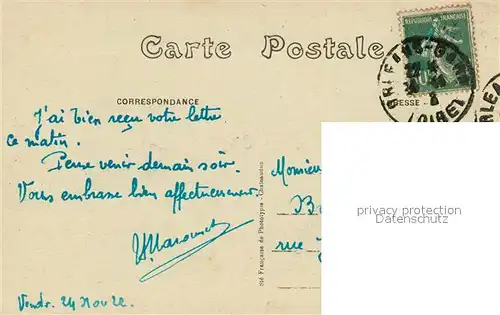 RÉPUBLIQUE FRANÇAISE
Carte Postale
ORLEANS-GARE
LOIRET
CORRESPONDANCE
J'ai bien reçu votre lettre
ce matin.
Pense venir demain soir.
Vous embrasse bien affectueusement.
Monsieur
rue
Sté Française de Phototypie - Chateaudun
privacy protection
Datenschutz
Vendr. 24 Nov 22.